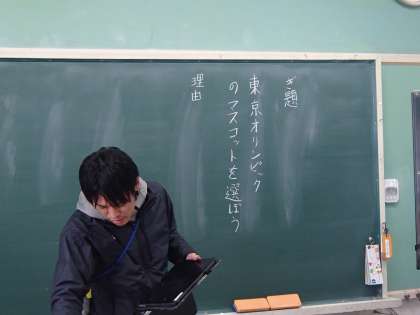 ぎ題
東京オリンピック
のマスコットを選ぼう
理由